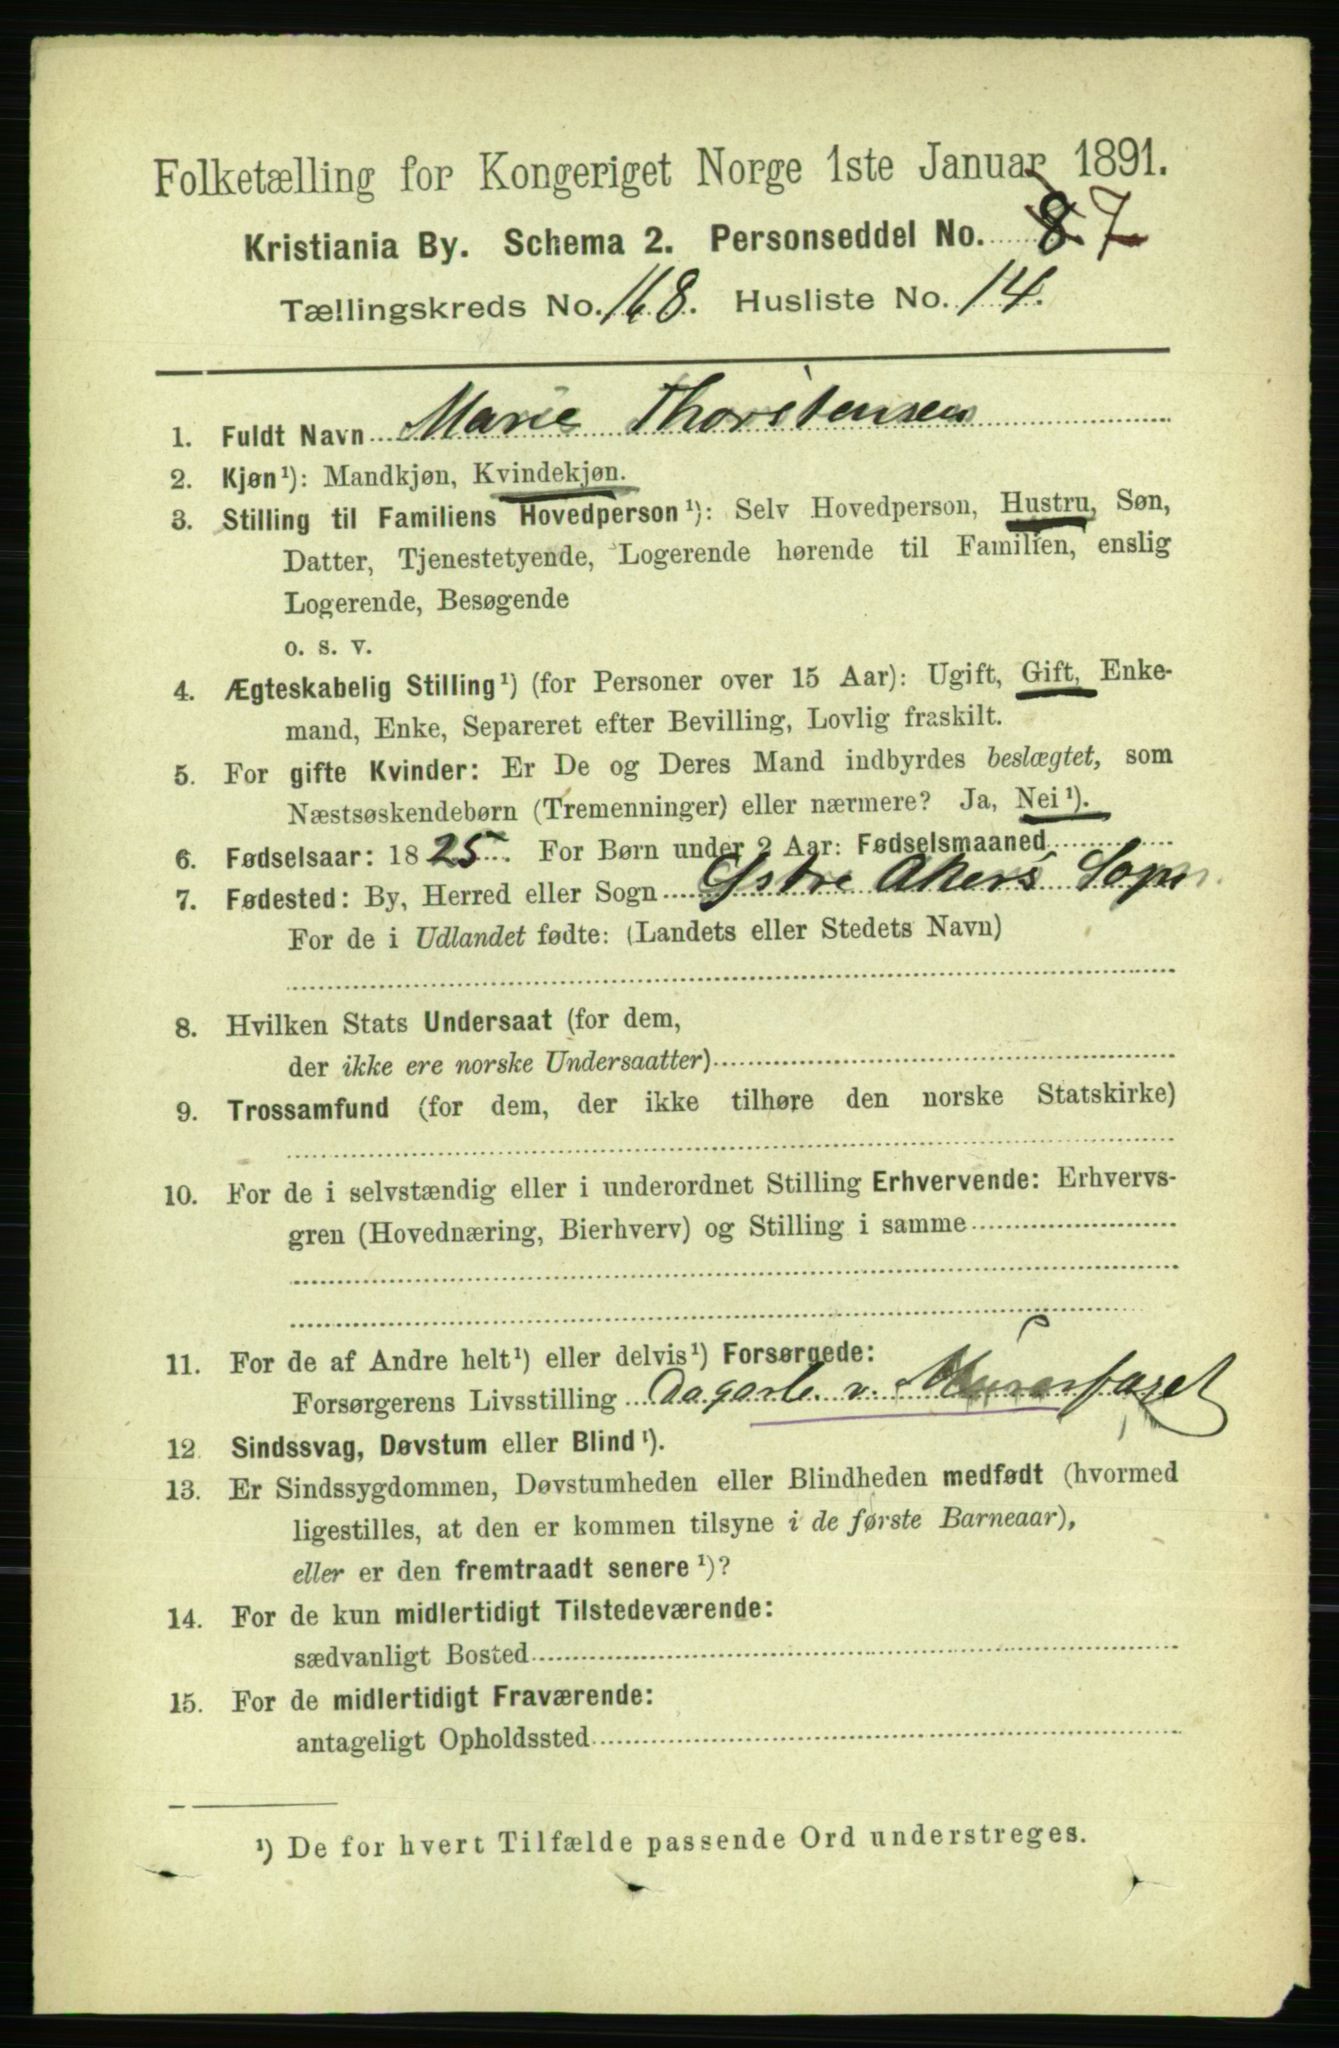 Folketælling for Kongeriget Norge 1ste Januar 1891.
Kristiania By. Schema 2. Personseddel No. 8 7
Tællingskreds No. 168. Husliste No. 14.
1. Fuldt Navn Marie Thorstensen
2. Kjøn¹): Mandkjøn, Kvindekjøn.
3. Stilling til Familiens Hovedperson¹): Selv Hovedperson, Hustru, Søn,
Datter, Tjenestetyende, Logerende hørende til Familien, enslig
Logerende, Besøgende
o. s. v.
4. Ægteskabelig Stilling¹) (for Personer over 15 Aar): Ugift, Gift, Enke-
mand, Enke, Separeret efter Bevilling, Lovlig fraskilt.
5. For gifte Kvinder: Er De og Deres Mand indbyrdes beslægtet, som
Næstsøskendebørn (Tremenninger) eller nærmere? Ja, Nei¹).
6. Fødselsaar: 1825. For Børn under 2 Aar: Fødselsmaaned
7. Fødested: By, Herred eller Sogn Østre Akers Sogn
For de i Udlandet fødte: (Landets eller Stedets Navn)
8. Hvilken Stats Undersaat (for dem,
der ikke ere norske Undersaatter)
9. Trossamfund (for dem, der ikke tilhøre den norske Statskirke)
10. For de i selvstændig eller i underordnet Stilling Erhvervende: Erhvervs-
gren (Hovednæring, Bierhverv) og Stilling i samme
11. For de af Andre helt¹) eller delvis¹) Forsørgede:
Forsørgerens Livsstilling Dagarb. v. Murerfaget
12. Sindssvag, Døvstum eller Blind¹).
13. Er Sindssygdommen, Døvstumheden eller Blindheden medfødt (hvormed
ligestilles, at den er kommen tilsyne i de første Barneaar),
eller er den fremtraadt senere¹)?
14. For de kun midlertidigt Tilstedeværende:
sædvanligt Bosted
15. For de midlertidigt Fraværende:
antageligt Opholdssted
¹) De for hvert Tilfælde passende Ord understreges.